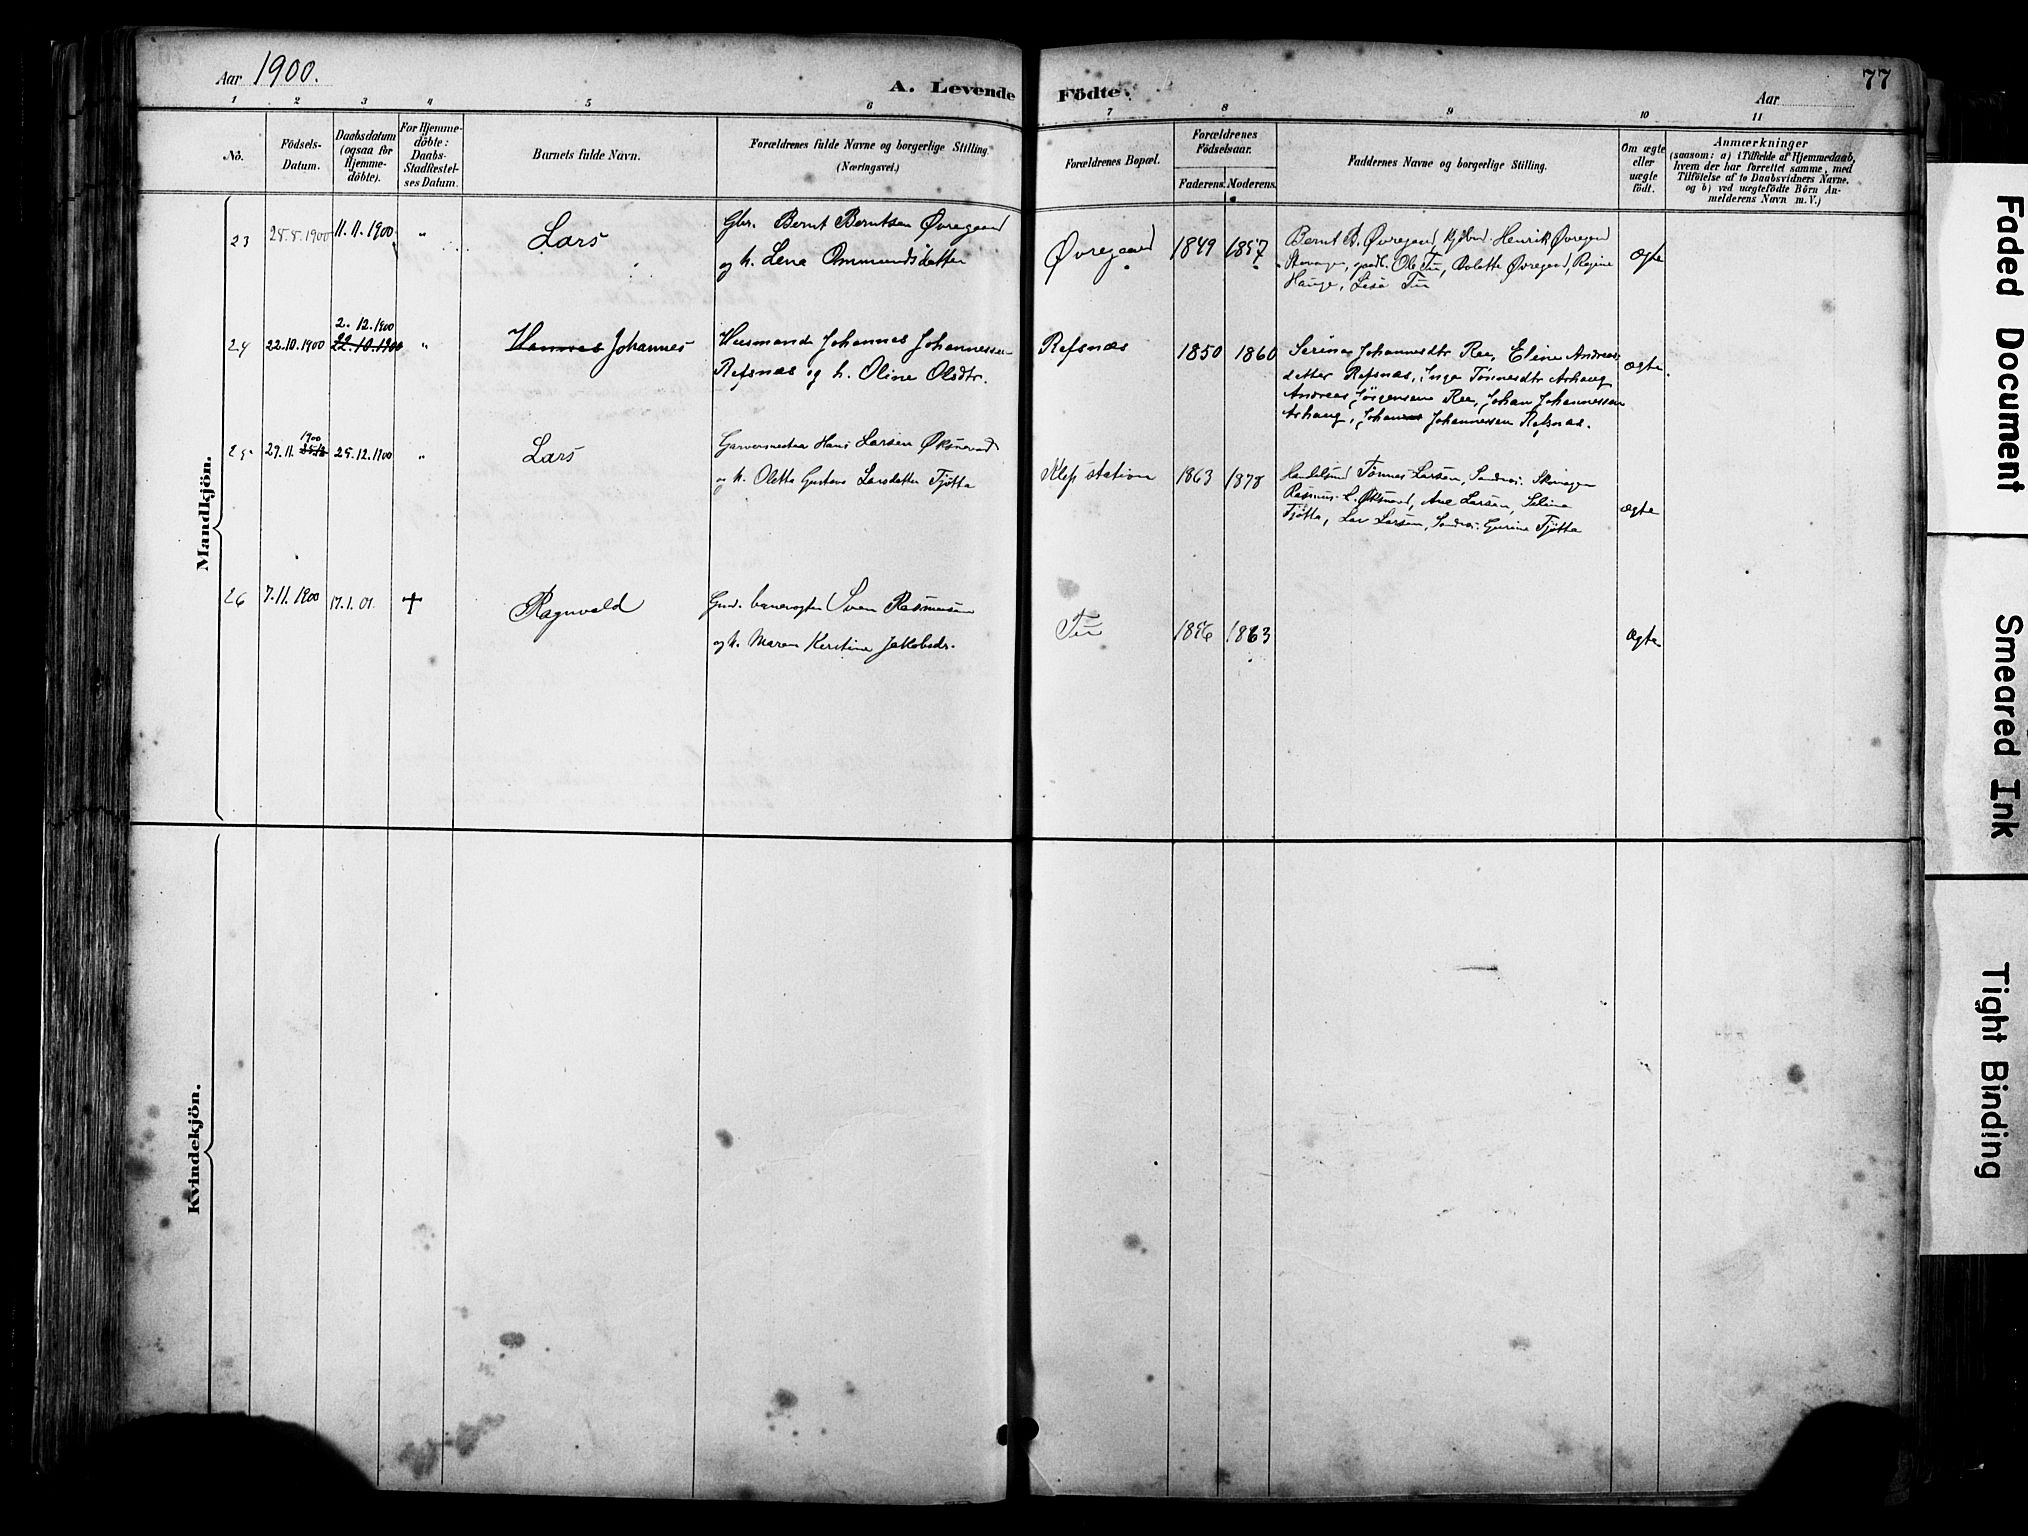 Aar 1900.
A. Levende Födte.
Aar
77
1 2 3 4 5 6 7 8 9 10 11
No.
Födsels-
Datum.
Daabsdatum
(ogsaa for
Hjemme-
döbte).
For Hjemme-
döbte:
Daabs-
Stadfæstel-
ses Datum.
Barnets fulde Navn.
Forældrenes fulde Navne og borgerlige Stilling
(Næringsvei.)
Forældrenes Bopæl.
Forældrenes
Födselsaar.
Faderens. Moderens.
Faddernes Navne og borgerlige Stilling.
Om ægte
eller
uægte
födt.
Anmærkninger
(saasom: a) i Tilfælde af Hjemmedaab,
hvem der har forrettet samme, med
Tilföielse af to Daabsvidners Navne.
og b) ved uægtefödte Börn An-
melderens Navn m. V.)
Mandkjön.
23 25.8.1900 11.11.1900 " Lars
Gbr. Bernt Berntsen Øvregaard
og h. Lena Ommundsdatter
Øvregaard 1849 1857
Bernt B. Øvregaard, Henrik Øvregaard
Stavanger, Ole Tu, Bolette Øvregaard, Regine
Hauge, Lisa Tu
ægte
24 22.10.1900 2.12.1900 22.10.1900 " Hannes Johannes
Husmand Johannes Johannessen
Refsnæs og h. Oline Olsdtr.
Refsnæs 1850 1860
Serina Johannesdtr Ree, Eline Andreas-
datter Refsnæs, Inga Tønnesdtr Ashaug
Andreas Jörgensen Ree, Johan Johannessen
Ashaug, Johannes Johannessen Refsnæs.
ægte
25 29.11.1900 25.12 25.12.1900 " Lars
Garvermester Hans Larsen Øksnevad
og h. Oletta Gustava Larsdatter Tjötta
Klep station 1863 1878
Tønnes Larsen, Sandnæs. Stavanger
Rasmus L. Øksnevad, Ane Larsen, Selina
Tjötta, Lars Larsen, Sandnæs. Gurine Tjötta
ægte
26 7.11.1900 17.1.01. † Ragnvald
Gmd. banevogter Sven Rasmussen
og h. Maren Kerstine Jakobsdr.
Tu 1856 1863
ægte
Kvindekjön.
Faded Document
Smeared Ink
Tight Binding